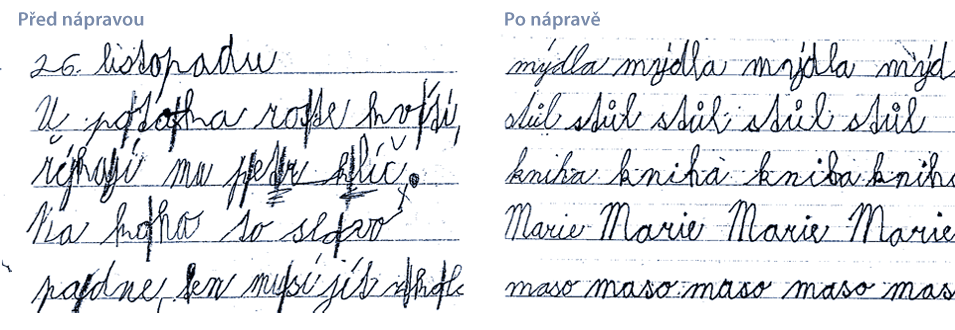 Před nápravou
26. listopadu
U potoka roste kvítí,
říkají mu petrklíč.
Na koho to slovo
padne, ten musí jít
Po nápravě
mýdla mýdla mýdla mýd
stůl stůl stůl stůl stůl
kniha kniha kniha knih
Marie Marie Marie Marie
maso maso maso maso mas